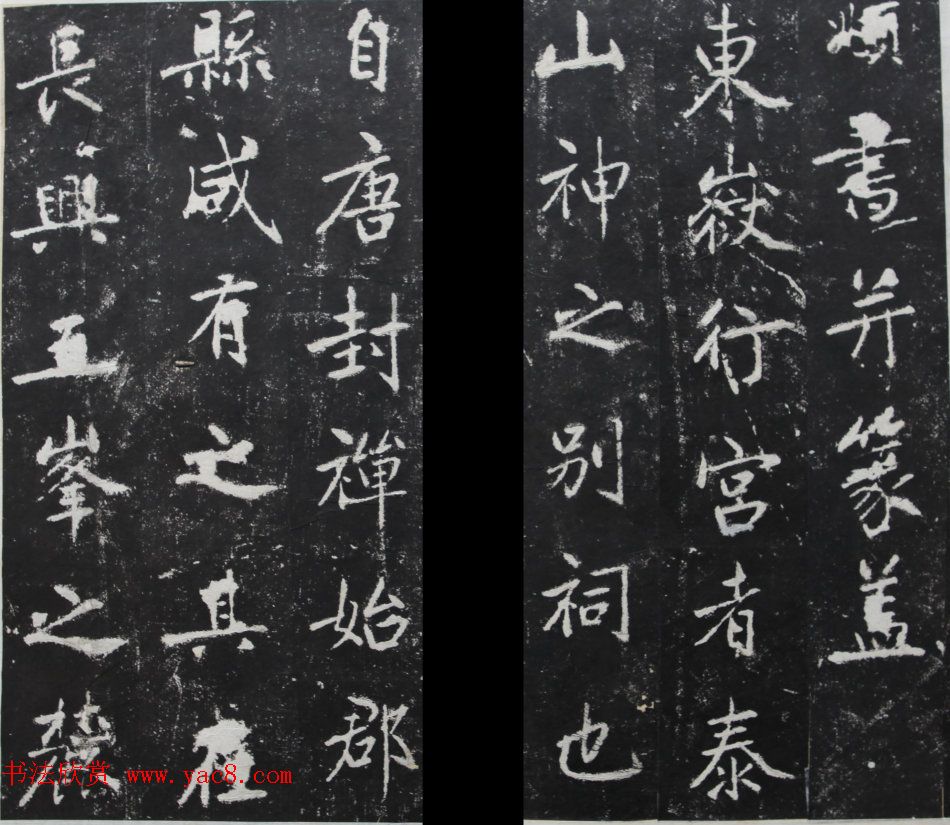 頫書并篆盖
東嶽行宮者泰
山神之别祠也
自唐封禪始郡
縣咸有之其在
長興五峯之麓
书法欣赏 www.yac8.com